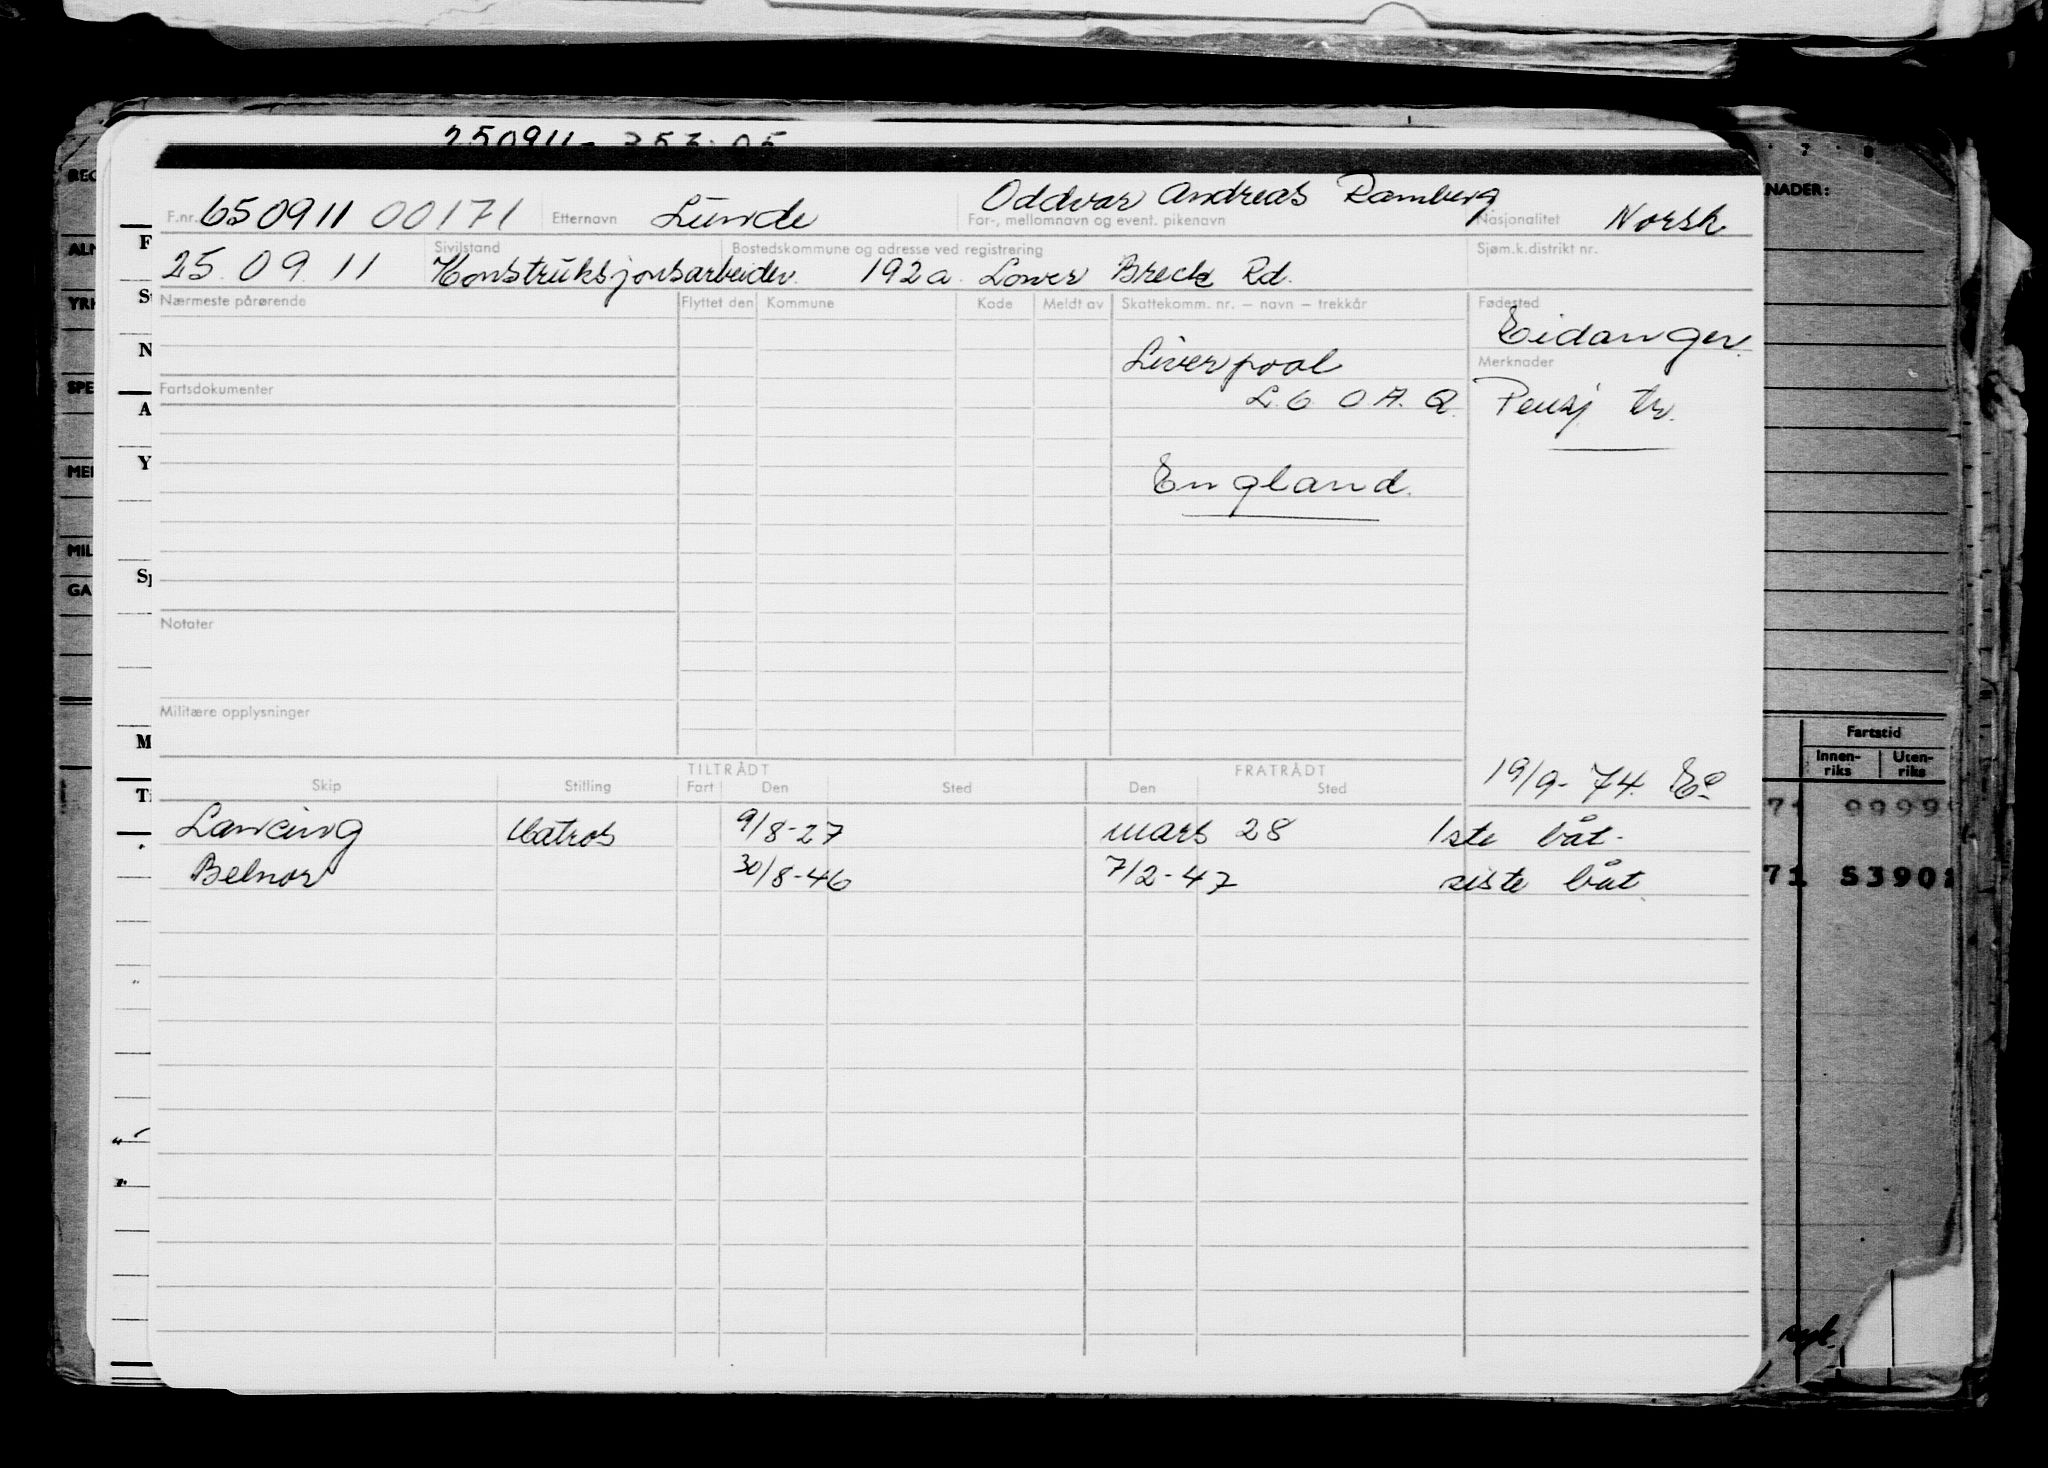 250911-
F.nr. 650911 00171 Etternavn Lunde Oddvar Andreas Ramberg For-, mellomnavn og event. pikenavn Nasjonalitet Norsk
25.09.11 Sivilstand Konstruksjonsarbeider. Bostedskommune og adresse ved registrering 192a. Lower Breck Rd. Sjøm.k.distrikt nr.
Nærmeste pårørende Flyttet den Kommune Kode Meldt av Skattekomm. nr. — navn — trekkår Fødested
Eidanger.
Liverpool Merknader
Fartsdokumenter L.6 O.A.Q. Pensj tr.
England.
Notater
Militære opplysninger
TILTRÅDT FRATRÅDT 19/9-74.
Skip Stilling Fart Den Sted Den Sted
Lancing Matros 9/8-27 mars 28 1ste båt.
Belnor 30/8-46 7/2-47 siste båt.
NADER:
Fartstid
Innen-riks Uten-riks
71 9999
71 S3901
REG
ALM
YRK
SPE
MER
MIL
GA
F
S
N
A
Y
Sj
M
T